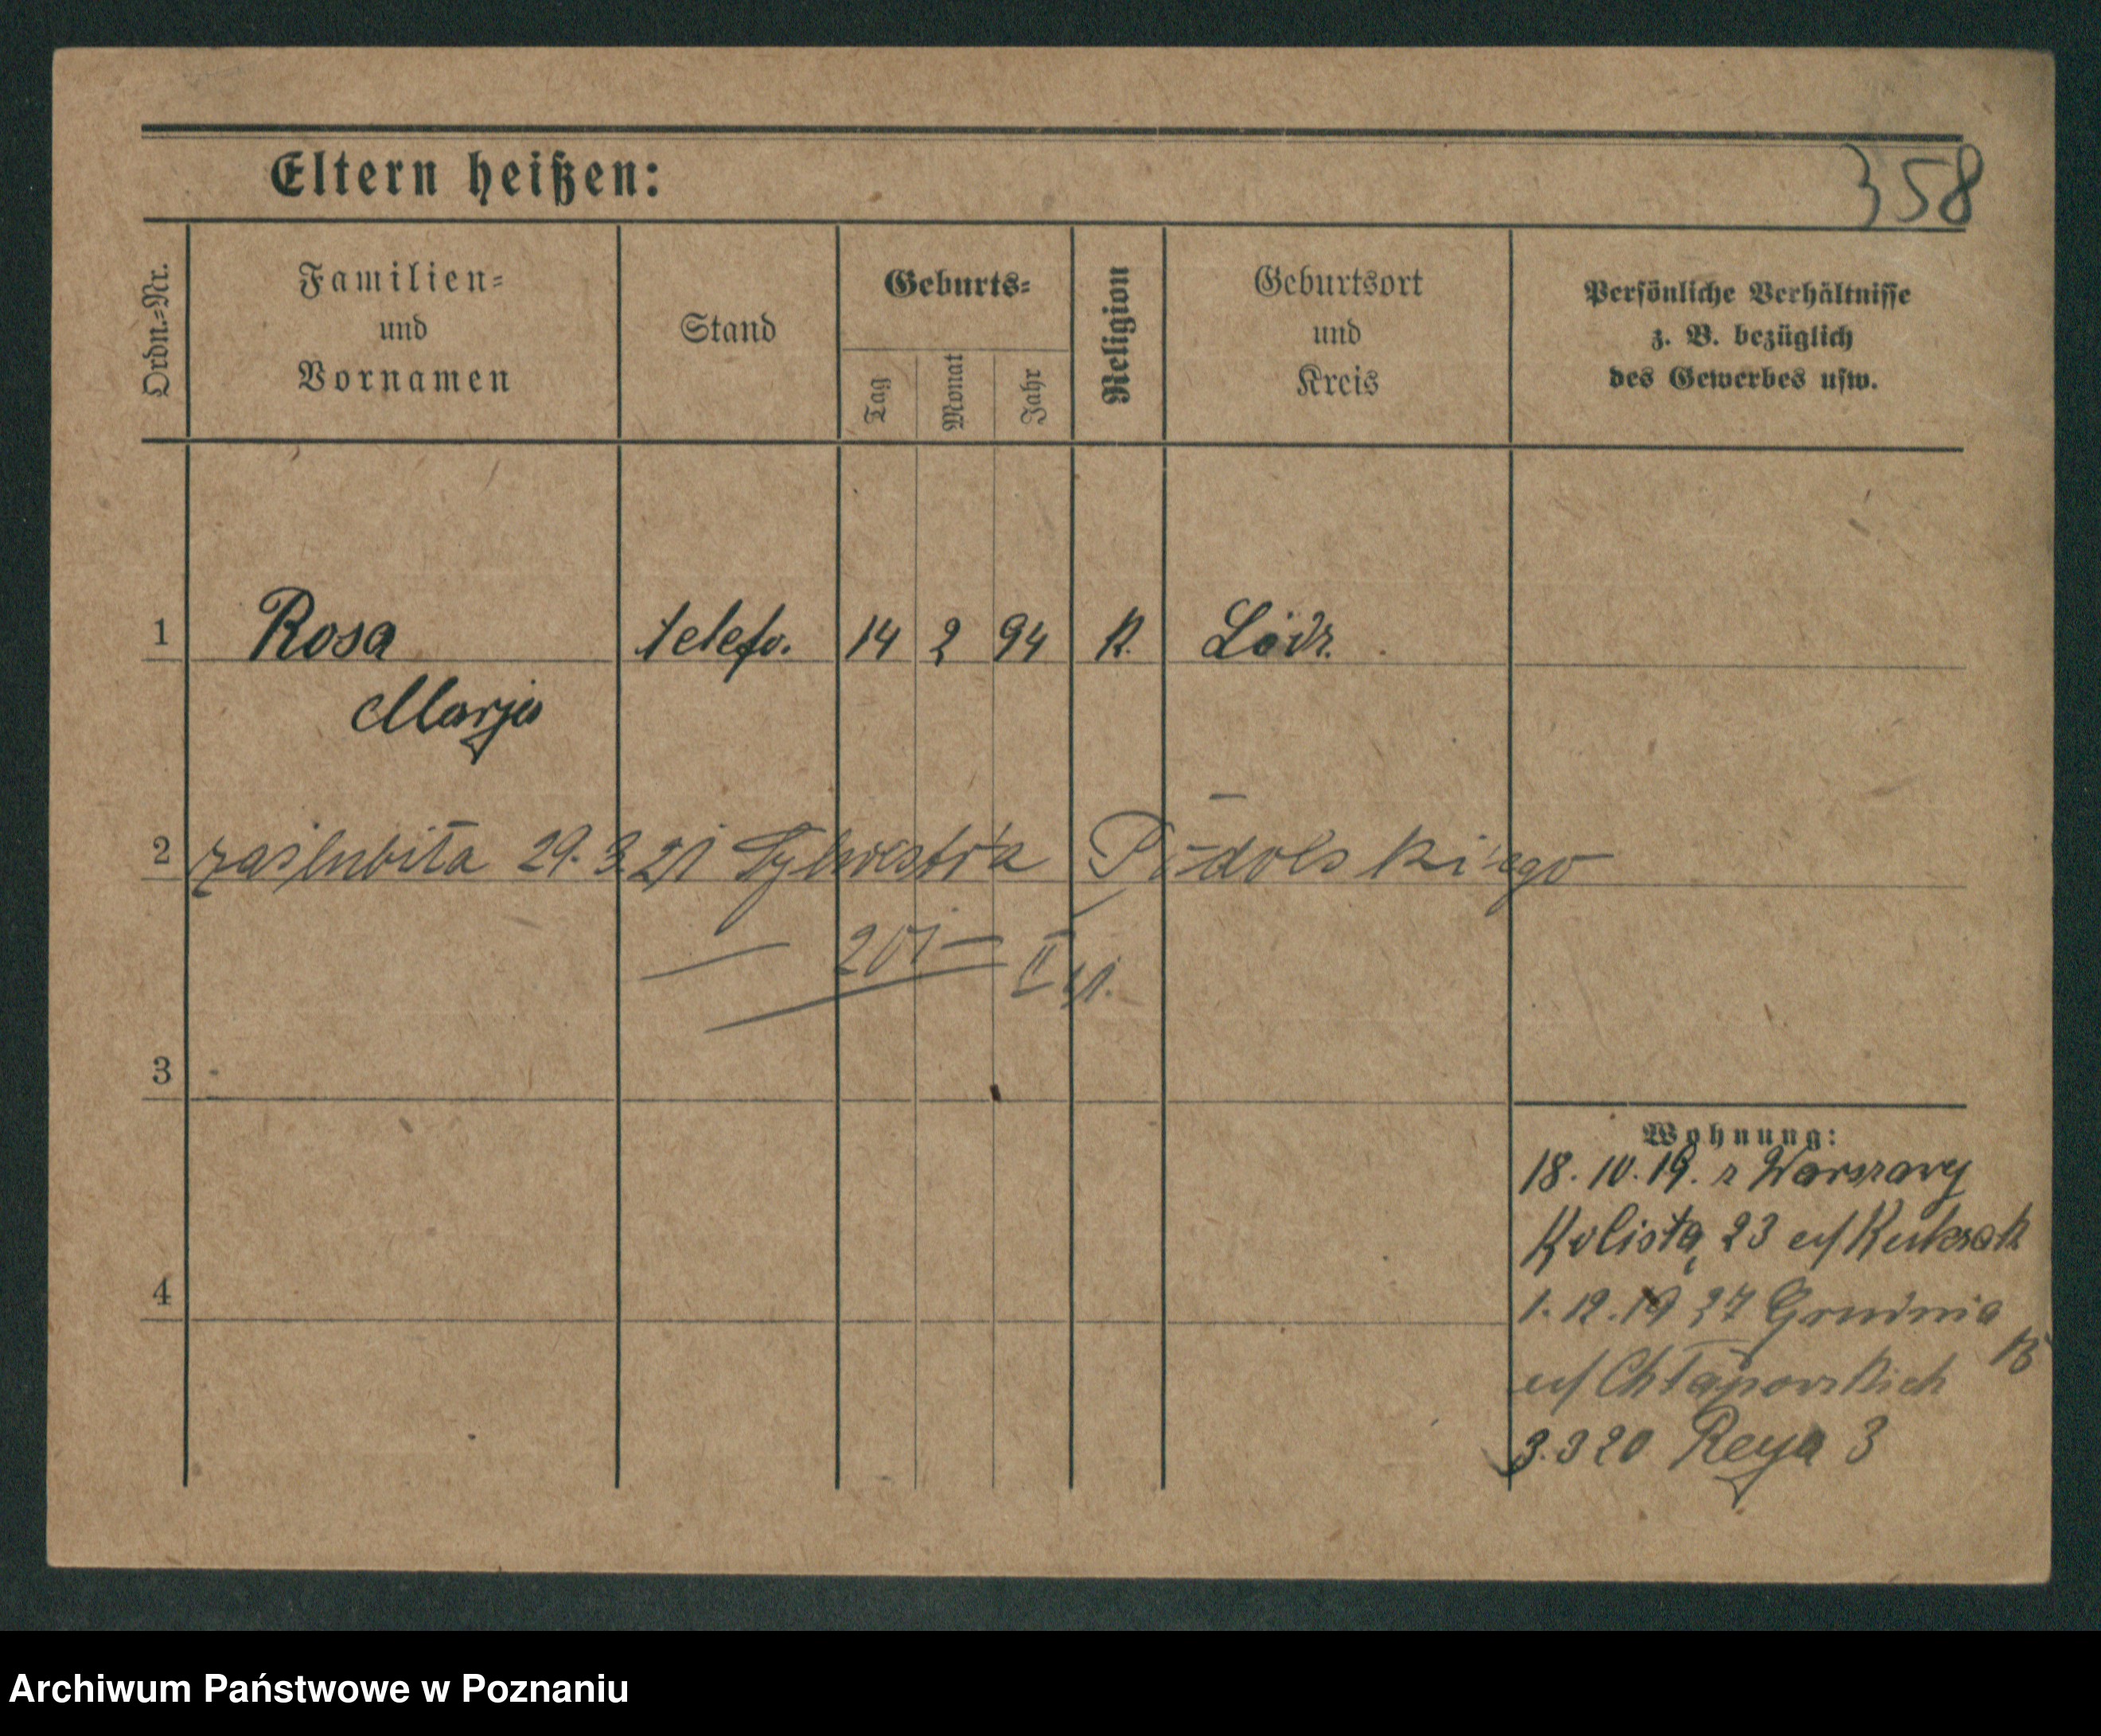 358
Eltern heißen:
Ordn.-Nr.
Familien-
und
Vornamen
Stand
Geburts-
Tag
Monat
Jahr
Religion
Geburtsort
und
Kreis
Persönliche Verhältnisse
z. B. bezüglich
des Gewerbes usw.
1 Rosa telefo. 14 2 94 K. Łódź.
Marja
2 zaślubiła 29.3.21 Sylwestra Podolskiego
201 II
3
Wohnung:
18.10.19. z Warszawy
Kolista 23 u/
4
1.12.19 27 Grudnia
u/ Chłapowskich
3.3 20 Reya 3
Archiwum Państwowe w Poznaniu